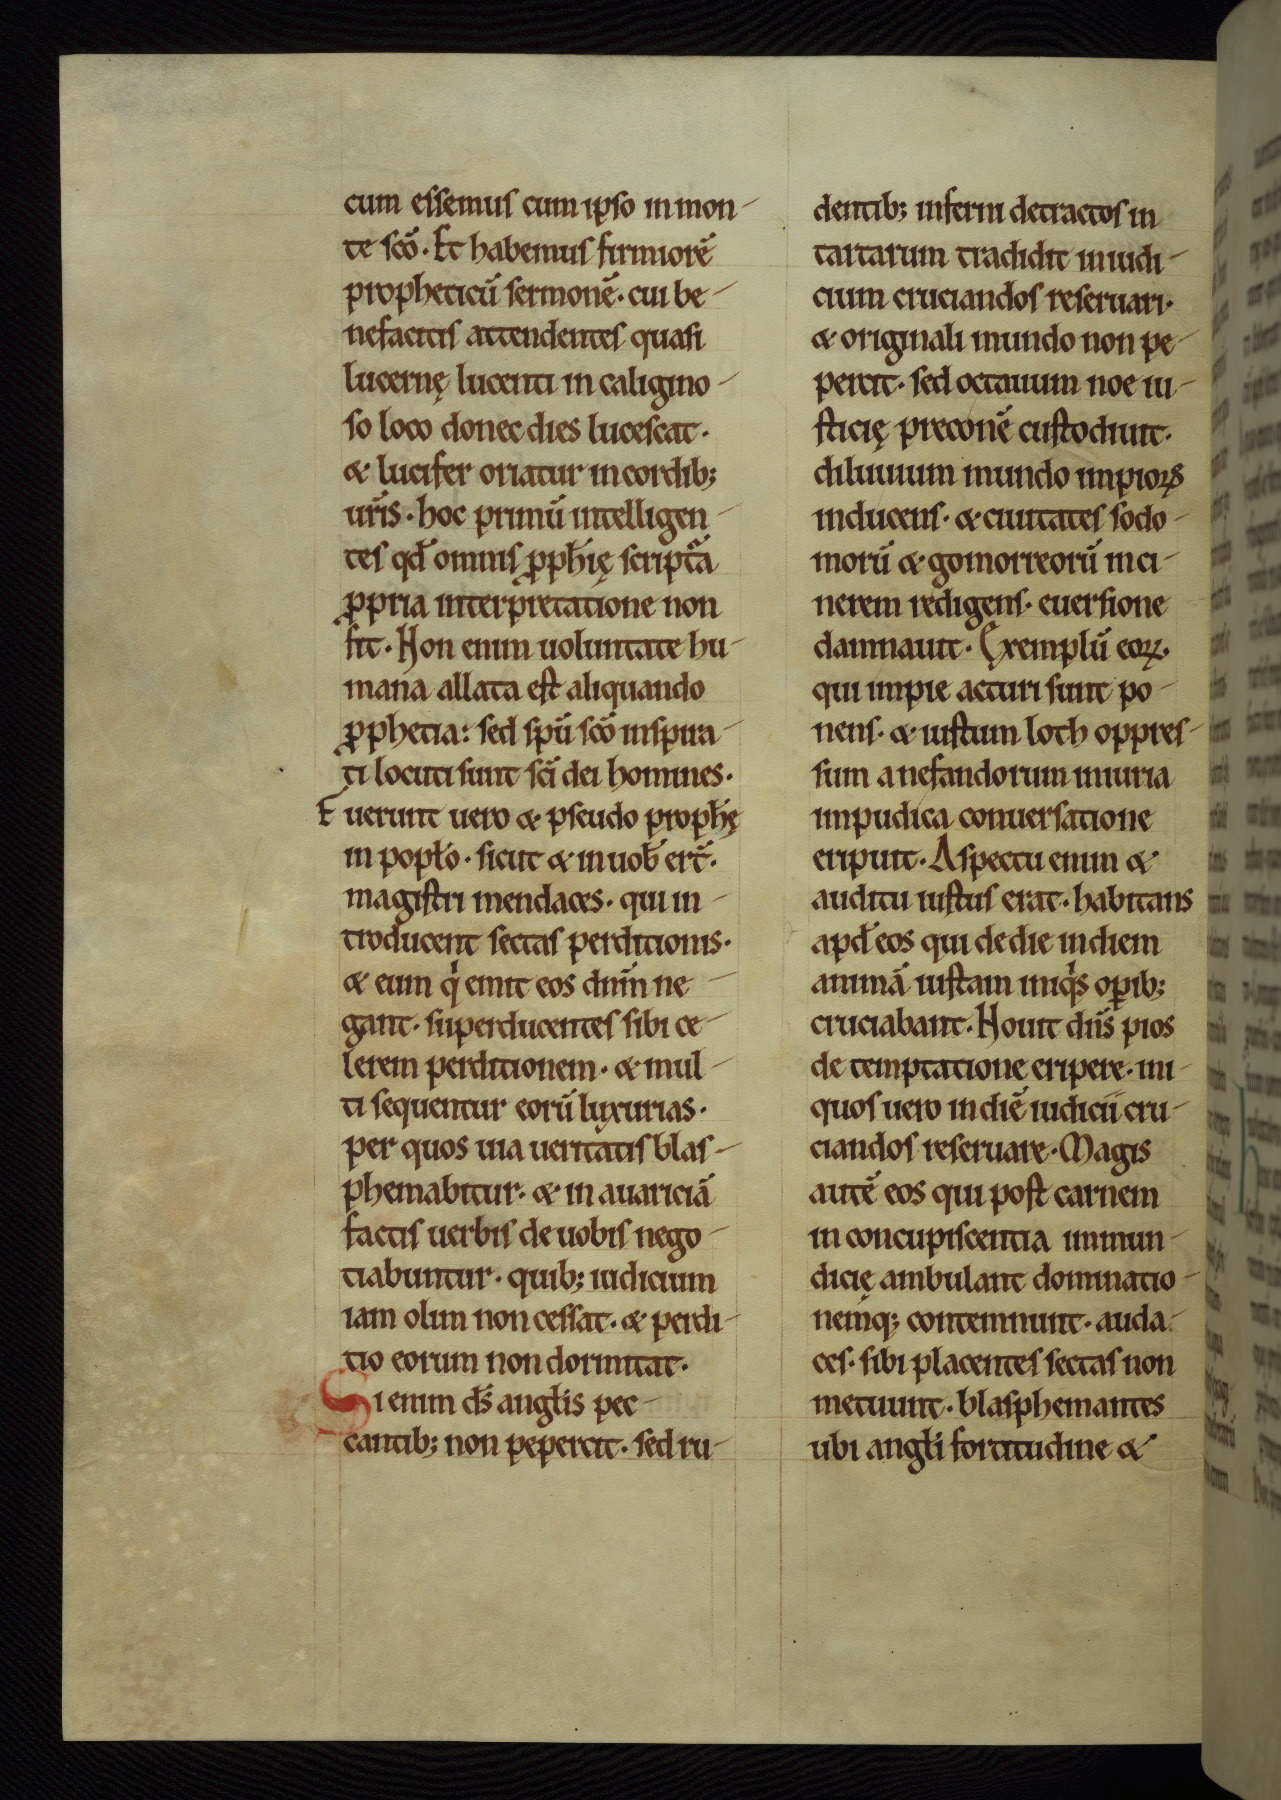 cum essemus cum ipso in mon-
te scō. Et habemus firmiorē
propheticū sermonē. cui be-
nefacitis attendentes quasi
lucernę lucenti in caligino-
so loco donec dies lucescat.
& lucifer oriatur in cordib;
ur̄is. hoc primū intelligen-
tes qđ omnis ꝓph̄ię scriptᷓa
ꝓpria interpretatione non
fit. Non enim uoluntate hu-
mana allata est aliquando
ꝓphetia: sed spū scō inspira-
ti locuti sunt scī dei homines.
Fuerunt uero & pseudo proph̄ę
in popło. sicut & in uoƀ er̄t.
magistri mendaces. qui in-
troducent sectas perditionis.
& eum qⁱ emit eos dn̄m ne-
gant. superducentes sibi ce-
lerem perditionem. & mul-
ti sequentur eorū luxurias.
per quos uia ueritatis blas-
phemabitur. & in auariciā
factis uerbis de uobis nego-
tiabuntur. quib; iudicium
iam olim non cessat. & perdi-
tio eorum non dormitat.
Si enim ds̄ angłis pec-
cantib; non pepercit. sed ru-
dentib; inferni detractos in
tartarum tradidit in iudi-
cium cruciandos reseruari.
& originali mundo non pe-
percit. sed octauum noe iu-
sticię preconē custodiuit.
diluuium mundo impioꝝ
inducens. & ciuitates sodo-
morū & gomorreorū in ci-
nerem redigens. euersione
damnauit. Exemplū eoꝝ.
qui impie acturi sunt po-
nens. & iustum loth oppres-
sum a nefandorum iniuria
impudica conuersatione
eripuit. Aspectu enim &
auditu iustus erat. habitans
apđ eos qui de die in diem
animā iustam iniqⁱs oꝑib;
cruciabant. Nouit dn̄s pios
de temptatione eripere. ini-
quos uero in diē iudicii cru-
ciandos reseruare. Magis
autē eos qui post carnem
in concupiscentia inmun-
dicię ambulant dominatio-
nemq; contemnunt. auda
ces. sibi placentes sectas non
metuunt. blasphemantes
ubi angłi fortitudine &